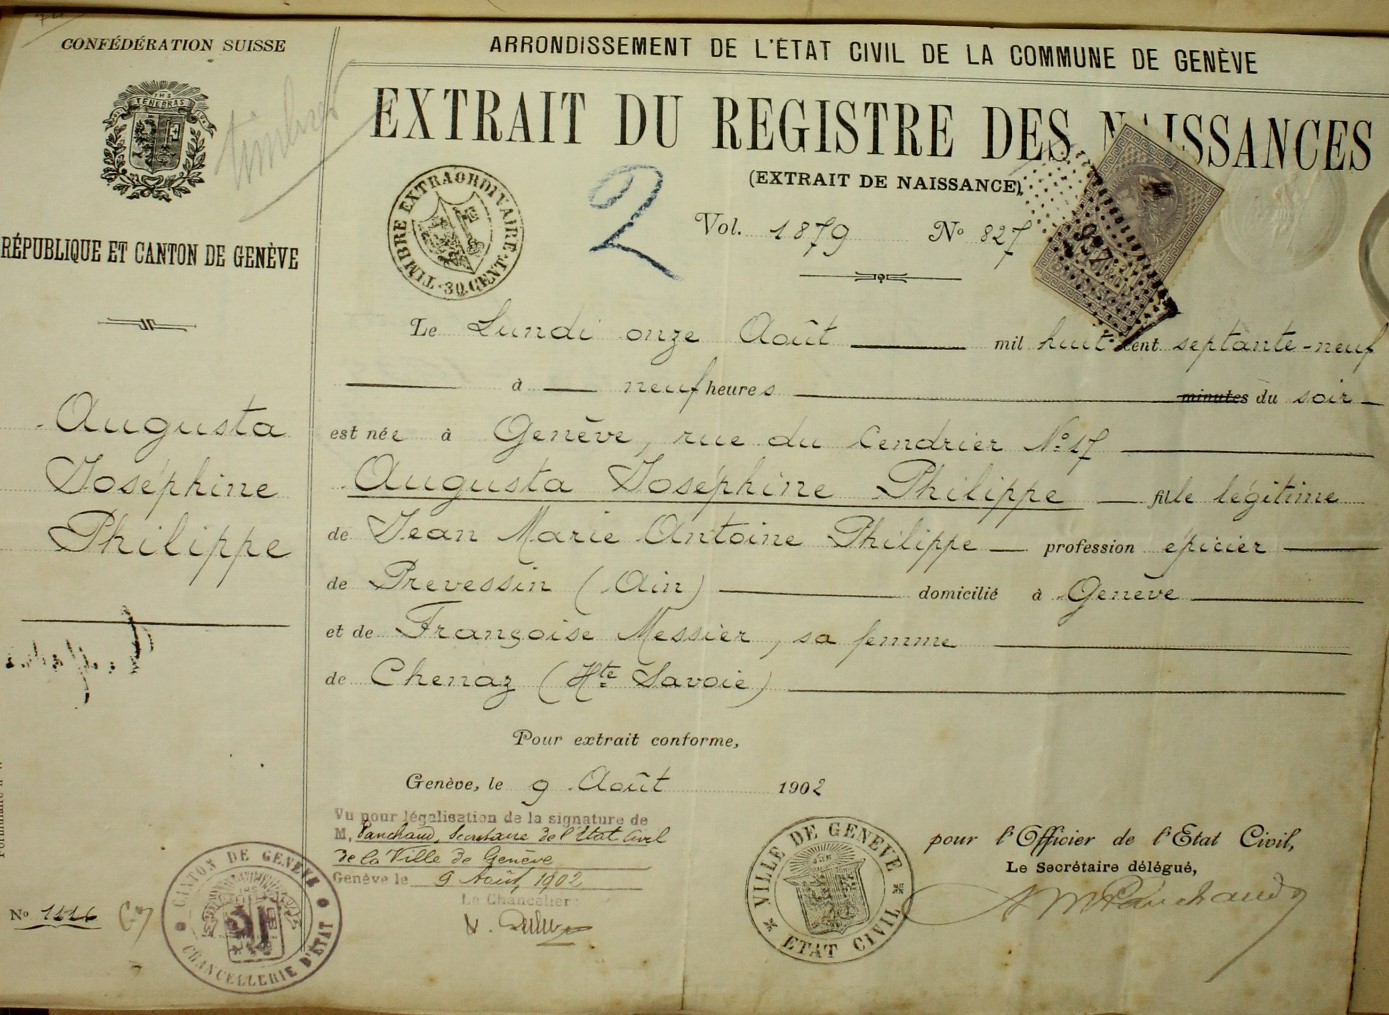 CONFÉDÉRATION SUISSE
TENEBRAS
RÉPUBLIQUE ET CANTON DE GENÈVE
Augusta
Joséphine
Philippe
No 1116
CANTON DE GENÈVE
CHANCELLERIE D'ÉTAT
timbre
ARRONDISSEMENT DE L'ÉTAT CIVIL DE LA COMMUNE DE GENÈVE
EXTRAIT DU REGISTRE DES NAISSANCES
(EXTRAIT DE NAISSANCE)
TIMBRE EXTRAORDINAIRE
30 CENT.
2
Vol. 1879 No 827
Le Lundi onze Août mil huit cent septante-neuf
à neuf heures minutes du soir
est née à Genève, rue du Cendrier No 17
Augusta Joséphine Philippe fille légitime
de Jean Marie Antoine Philippe profession épicier
de Prevessin (Ain) domicilié à Genève
et de Françoise Messier, sa femme
de Chenaz (Hte Savoie)
Pour extrait conforme,
Genève, le 9 Août 1902
Vu pour légalisation de la signature de
M. Panchaud, Secrétaire de l'Etat Civil
de la Ville de Genève
Genève le 9 Août 1902
Le Chancelier:
VILLE DE GENÈVE
ETAT CIVIL
pour l'Officier de l'Etat Civil,
Le Secrétaire délégué,
Panchaud